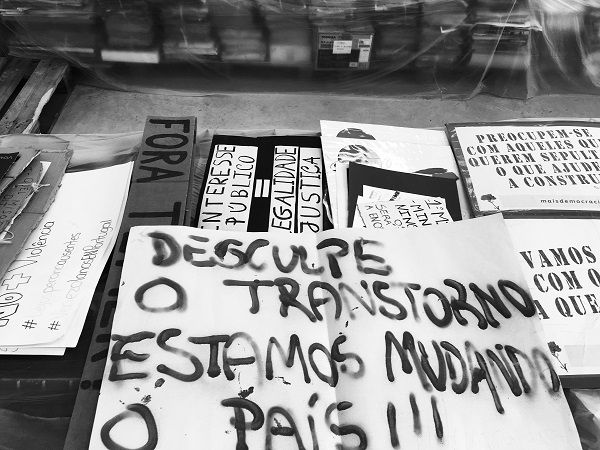 FORA T
INTERESSE
PÚBLICO
=
LEGALIDADE
JUSTIÇA
PREOCUPEM-SE
COM AQUELES QU
QUEREM SEPUL
O QUE AJUDE
A CONSTRU
maisdemocraci
VAMOS
COM O
A QUE
Violência
DESCULPE
O TRANSTORNO
ESTAMOS MUDANDO
O PAÍS!!!